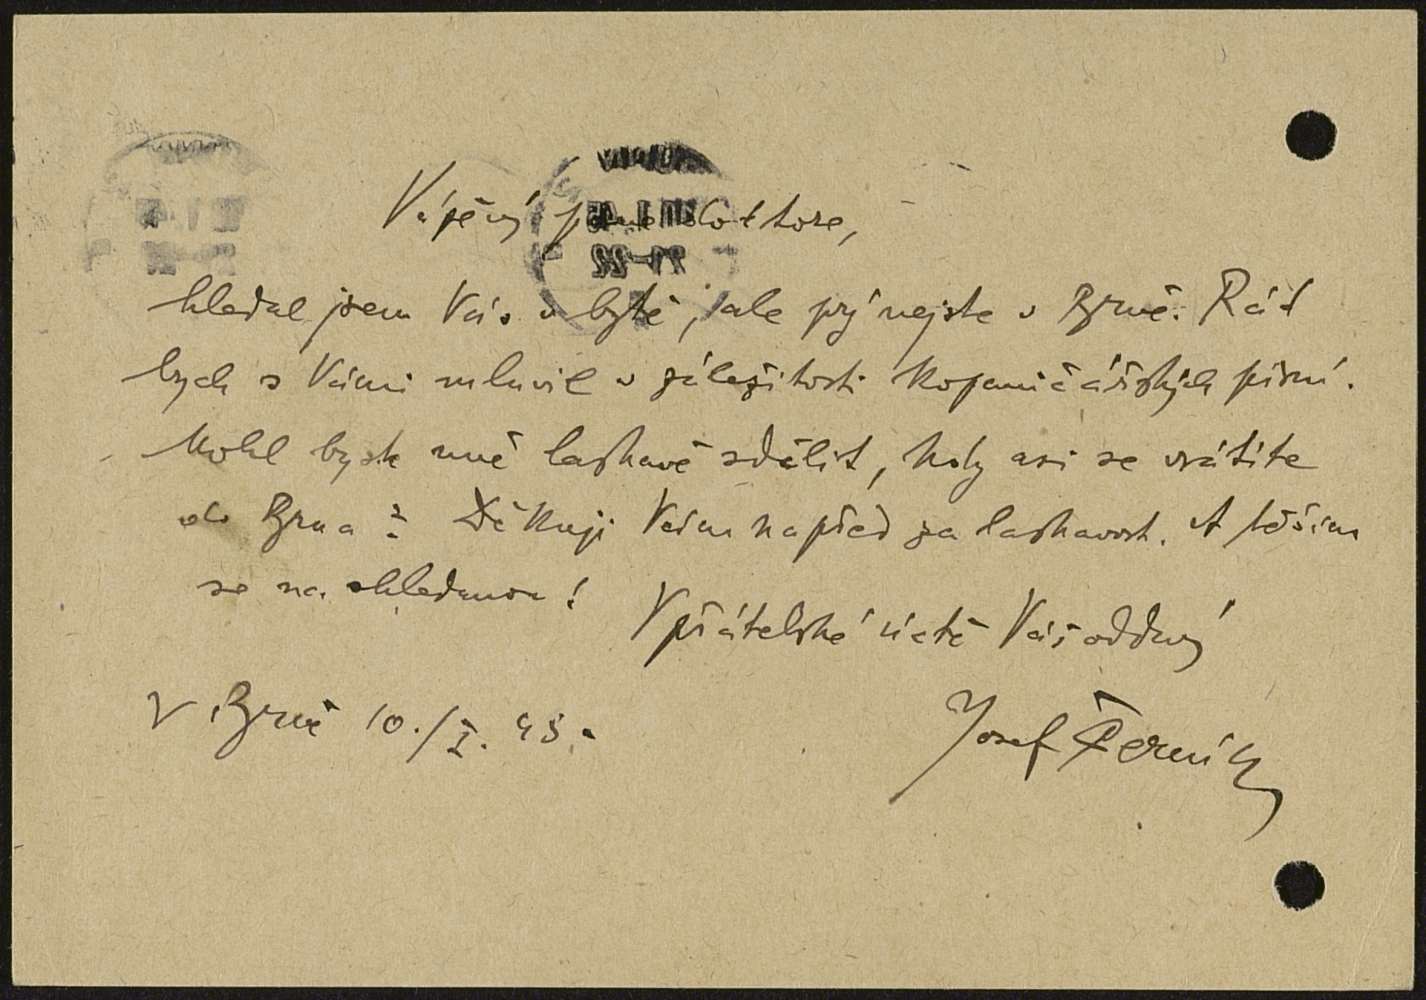 Vážený pane doktore,
hledal jsem Vás v bytě, ale prý nejste v Brně. Rád
bych s Vámi mluvil v záležitosti kopaničářských písní.
Mohl byste mně laskavě sdělit, kdy asi se vrátíte
do Brna? Děkuji Vám napřed za laskavost. A těším
se na shledanou!
V přátelské úctě Váš oddaný
V Brně 10./I. 45.
Josef Černík
21-22